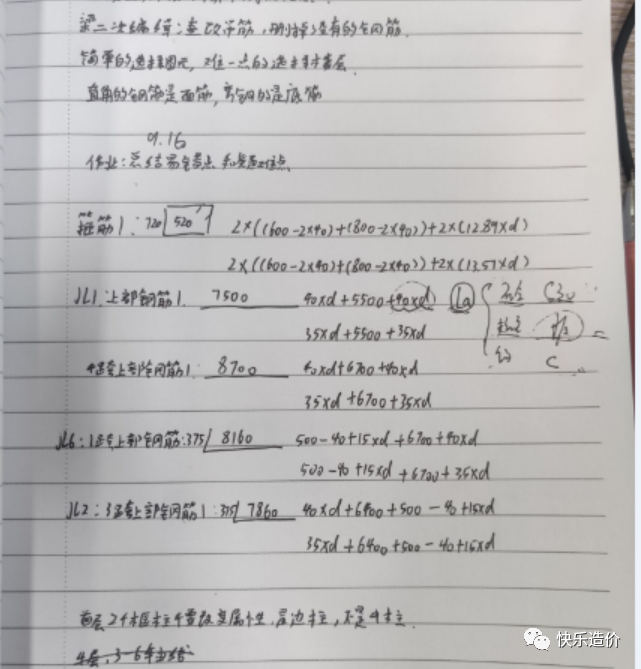 梁二次编辑:查改吊筋,删掉没有的钢筋
简单的选择图元,难一点的选择
直角的钢筋是面筋,弯钩的是底筋
9.16
作业:总结易错点和疑难点
箍筋1:720 520 2×((600-2×40)+(800-2×40))+2×(12.89×d)
2×((600-2×40)+(800-2×40))+2×(13.57×d)
JL1.上部钢筋1. 7500 40×d+5500+40×d la C30
35×d+5500+35×d
4跨上部钢筋1: 8700 40×d+6700+40×d C
35×d+6700+35×d
JL6:1跨上部钢筋:375 8160 500-40+15×d+6700+40×d
500-40+15×d+6700+35×d
JL2:3跨上部钢筋1:375 7860 40×d+6400+500-40+15×d
35×d+6400+500-40+15×d
首层24框柱需改变属性,是边柱,不是中柱
快乐造价